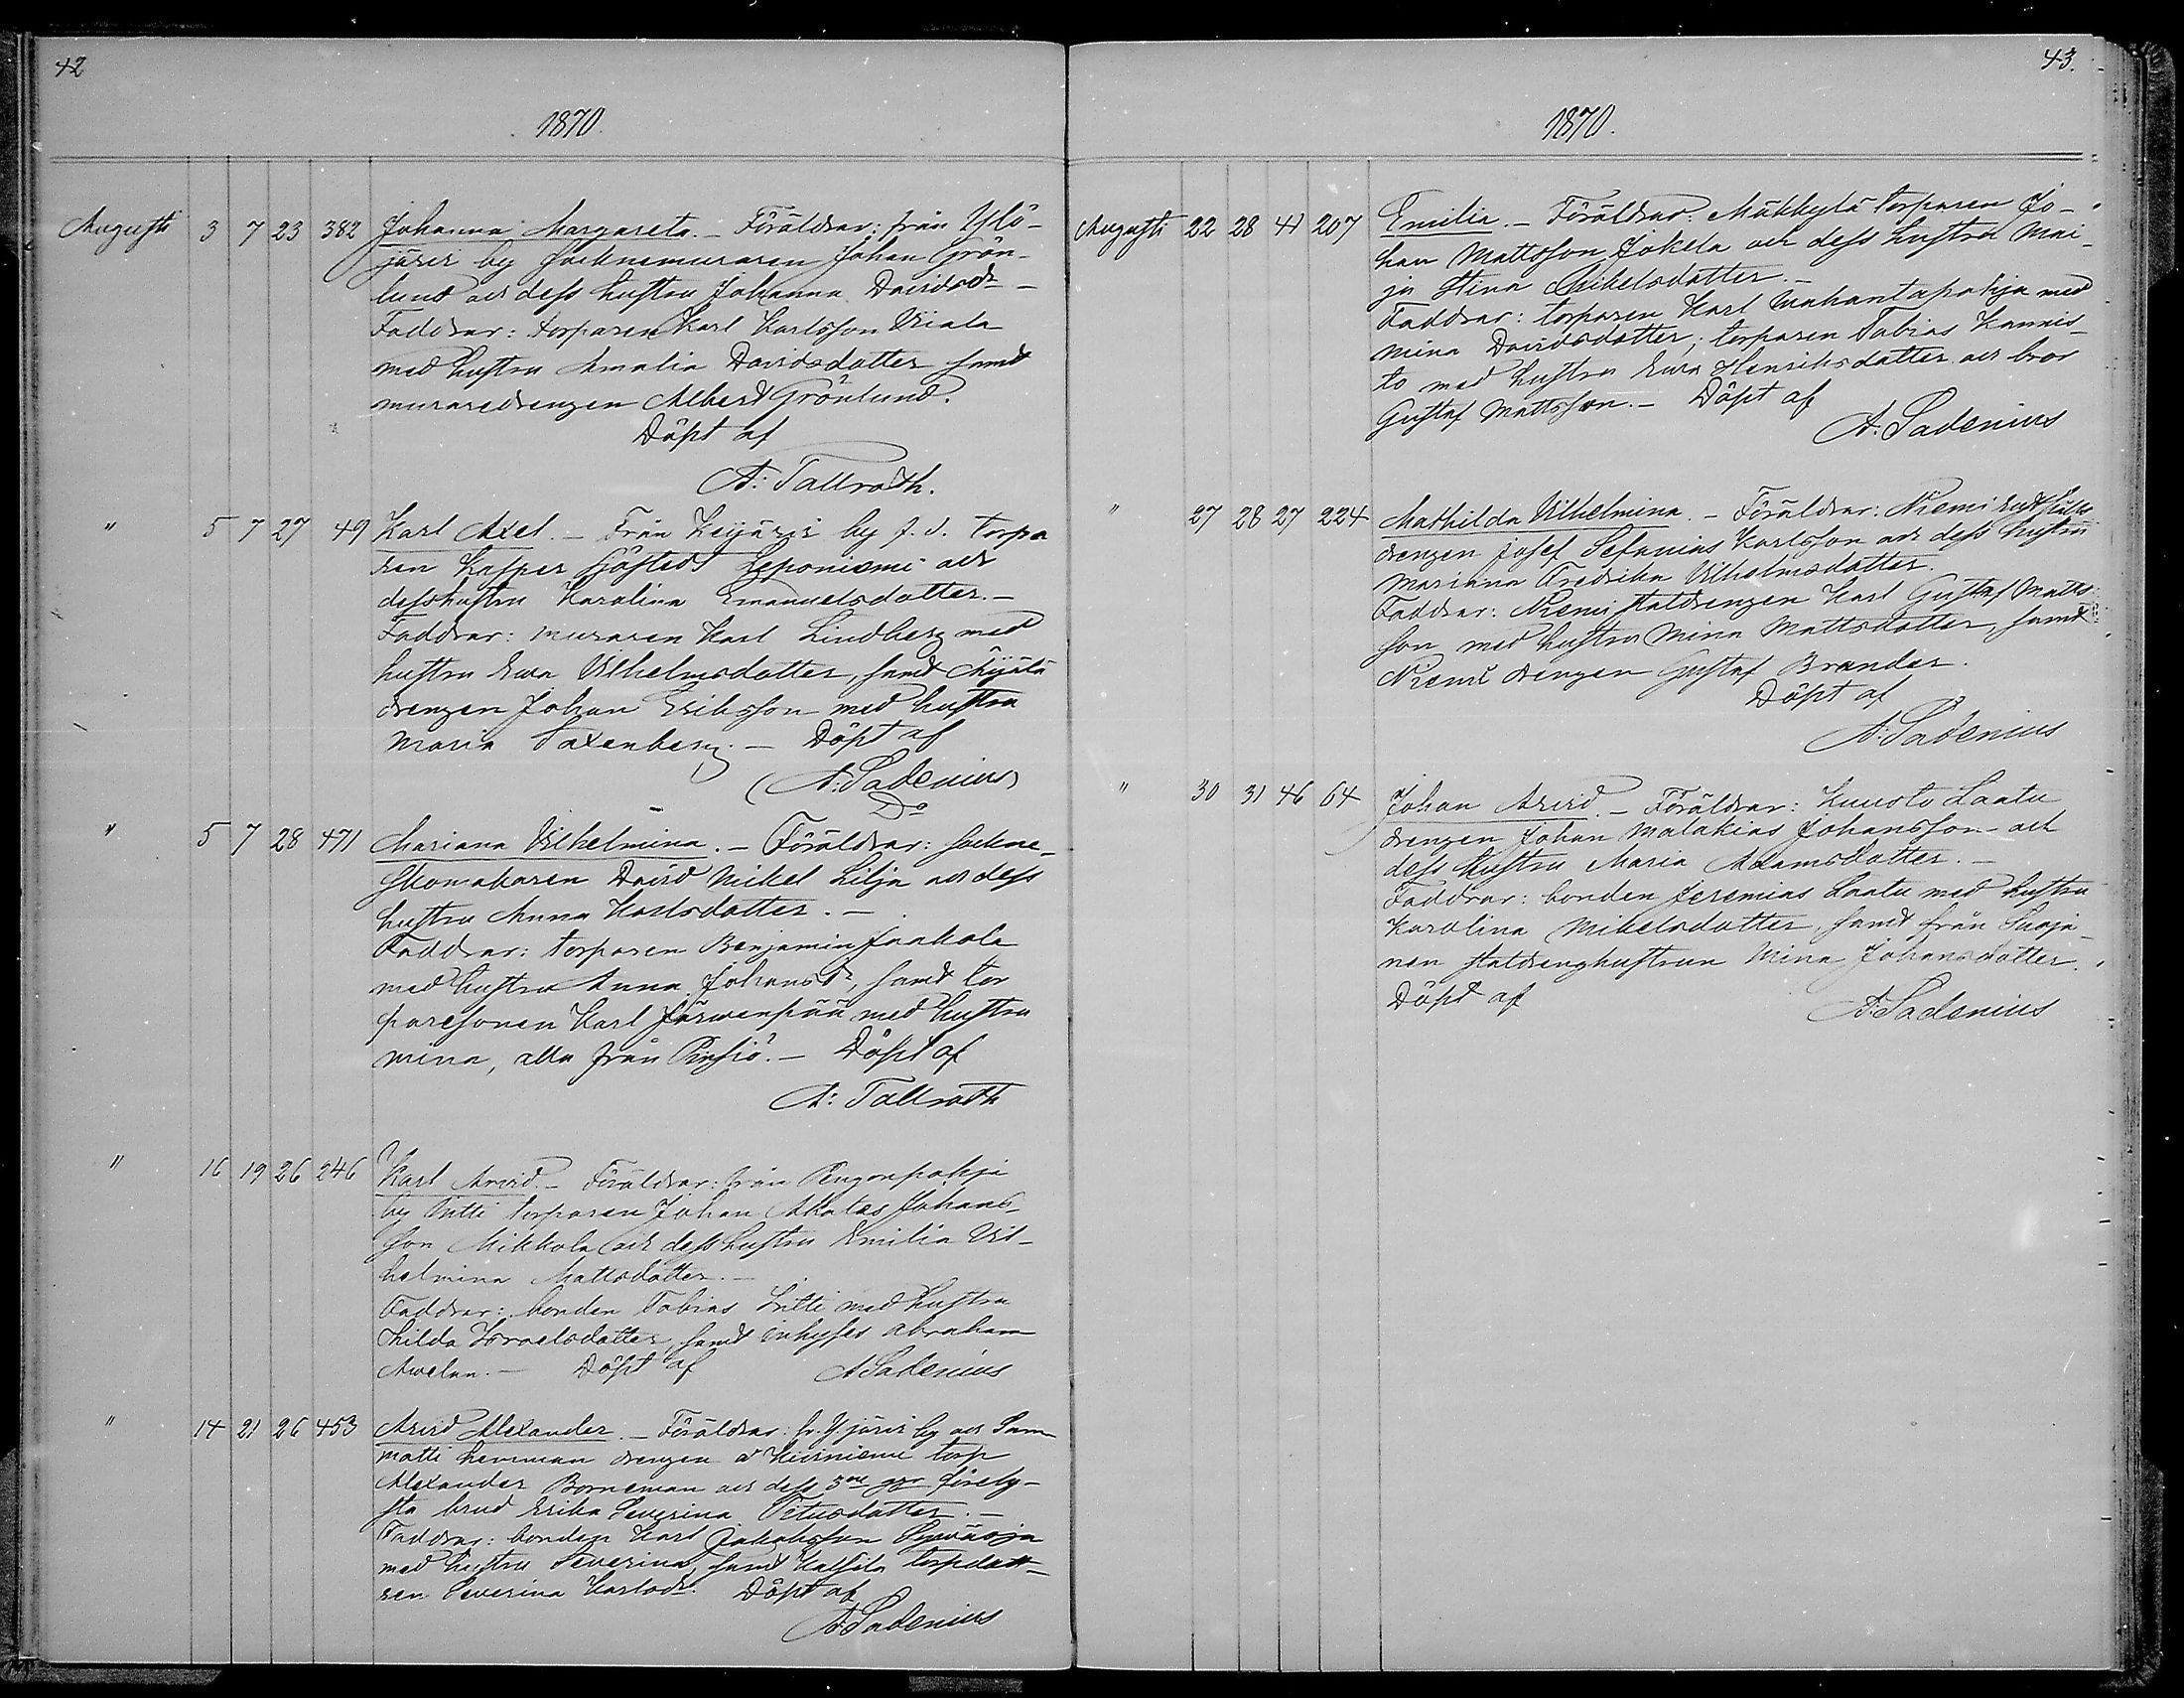 42
1870.
Augusti 3 7 23 382 Johanna Margareta. – Föräldrar: från Ylö-
järvi by Socknemuraren Johan Grön-
lund och dess hustru Johanna Davidsdr –
Faddrar: torparen Karl Karlsson Uiala
med hustru Amalia Davidsdotter samt
muraredrengen Albert Grönlund.
Döpt af
A: Tallroth.
" 5 7 27 49 Karl Axel. – Från Keijärvi by f.d. torpa
ren Kasper Sjöstedt Leponiemi och
dess hustru Karolina Emanuelsdotter. –
Faddrar: muraren Karl Lindberg med
hustru Ewa Vilhelmsdotter, samt
drengen Johan Eriksson med hustru
Maria Saxenberg. – Döpt af
A: Ladenius
Do
" 5 7 28 471 Mariana Vilhelmina. – Föräldrar: Sockne-
skomakaren David Mikel Lilja och dess
hustru Anna Karlsdotter. –
Faddrar: torparen Benjamin Jaakola
med hustru Anna Johansdr, samt tor
paresonen Karl Järwenpää med hustru
Mina, alla från Pinsiö. – Döpt af
A: Tallroth
" 16 19 26 246 Karl Arvid. – Föräldrar: från Pengonpohja
by torparen Johan Akates Johans-
son Mikkola och dess hustru Emilia Vil-
helmina Mattsdotter. –
Faddrar: bonden Tobias med hustru
Hilda Israelsdotter, samt inhyses Abraham
Awelan. – Döpt af A Ladenius
" 14 21 26 453 Arvid Alexander. – Föräldrar: fr. Y.järvi by och Sam
matti hemman drengen å torp
Alexander Borneman och dess 3ne ggr förely-
sta brud Erika Severina Titusdotter. –
Faddrar: bonden Karl Jakobsson
med hustru Severina, samt torpdott-
ren Severina Karlsdr. Döpt af
A. Ladenius
43.
1870.
Augusti 22 28 41 207 Emilia. – Föräldrar. Mäkkylä torparen Jo-
han Mattsson Jokela och dess hustru Mai-
ja Stina Mikelsdotter. –
Faddrar: torparen Karl Wahantapohja med
Mina Davidsdotter; torparen Tobias Kannis-
to med hustru Ewa Henriksdotter och bror
Gustaf Mattsson. – Döpt af
A. Ladenius
" 27 28 27 224 Mathilda Vilhelmina. – Föräldrar: Niemi
drengen Josef Sefanias Karlsson och dess hustru
Mariana Fredrika Vilhelmsdotter.
Faddrar: Niemi statdrengen Karl Gustaf Matts-
son med hustru Mina Mattsdotter, samt
Niemi drengen Gustaf Brander.
Döpt af
A: Ladenius
" 30 31 46 64 Johan Arvid. – Föräldrar: Kuusto Laatu
drengen Johan Malakias Johansson och
dess hustru Maria Adamsdotter. –
Faddrar: bonden Jeremias Laatu med hustru
Karolina Mikelsdotter, samt från Suoja-
nen statdrenghustrun Mina Johansdotter.
Döpt af A: Ladenius